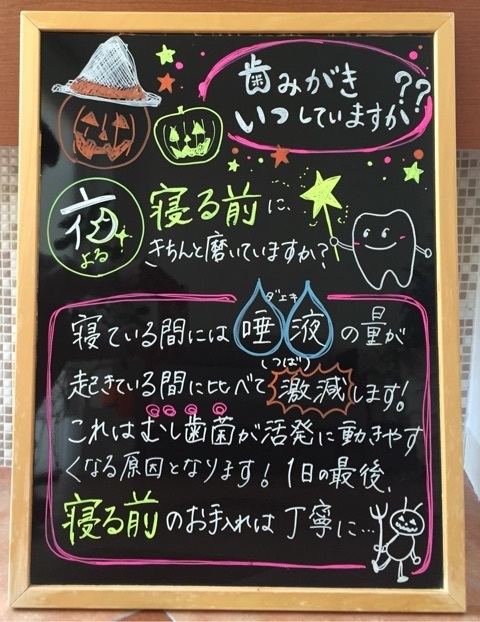 歯みがき
いつしていますか??
夜
よる
寝る前に、
きちんと磨いていますか?
寝ている間には唾液の量が
ダエキ
(つばり)
起きている間に比べて激減します!
これはむし歯菌が活発に動きやす
くなる原因となります! 1日の最後、
寝る前のお手入れは丁寧に…